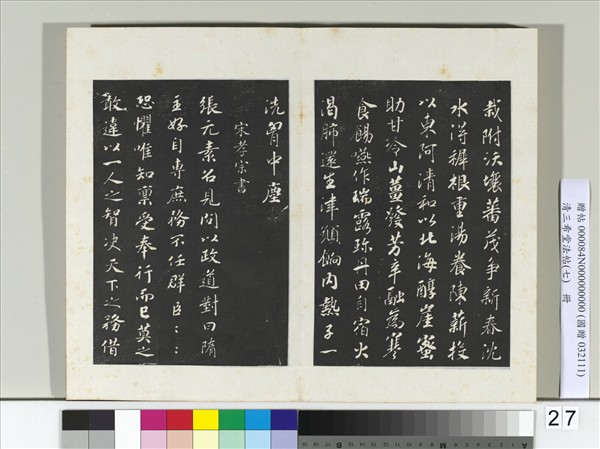 栽附沃壤蕃茂争新春沈
水得稚根重湯養陳薪投
以東阿清和以北海醇崖蜜
助甘冷山薑發芳辛融為寒
食餳嚥作瑞露珍丹田自宿火
渴肺還生津願餉内熱子一
洗胷中塵
宋孝宗書
張元素召見問以政道對曰隋
主好自專庶務不任群臣〻〻
恐懼唯知稟受奉行而已莫之
敢違以一人之智决天下之務借
贈帖 000084N000000000 (國贈 032111)
清三希堂法帖(七) 冊
27